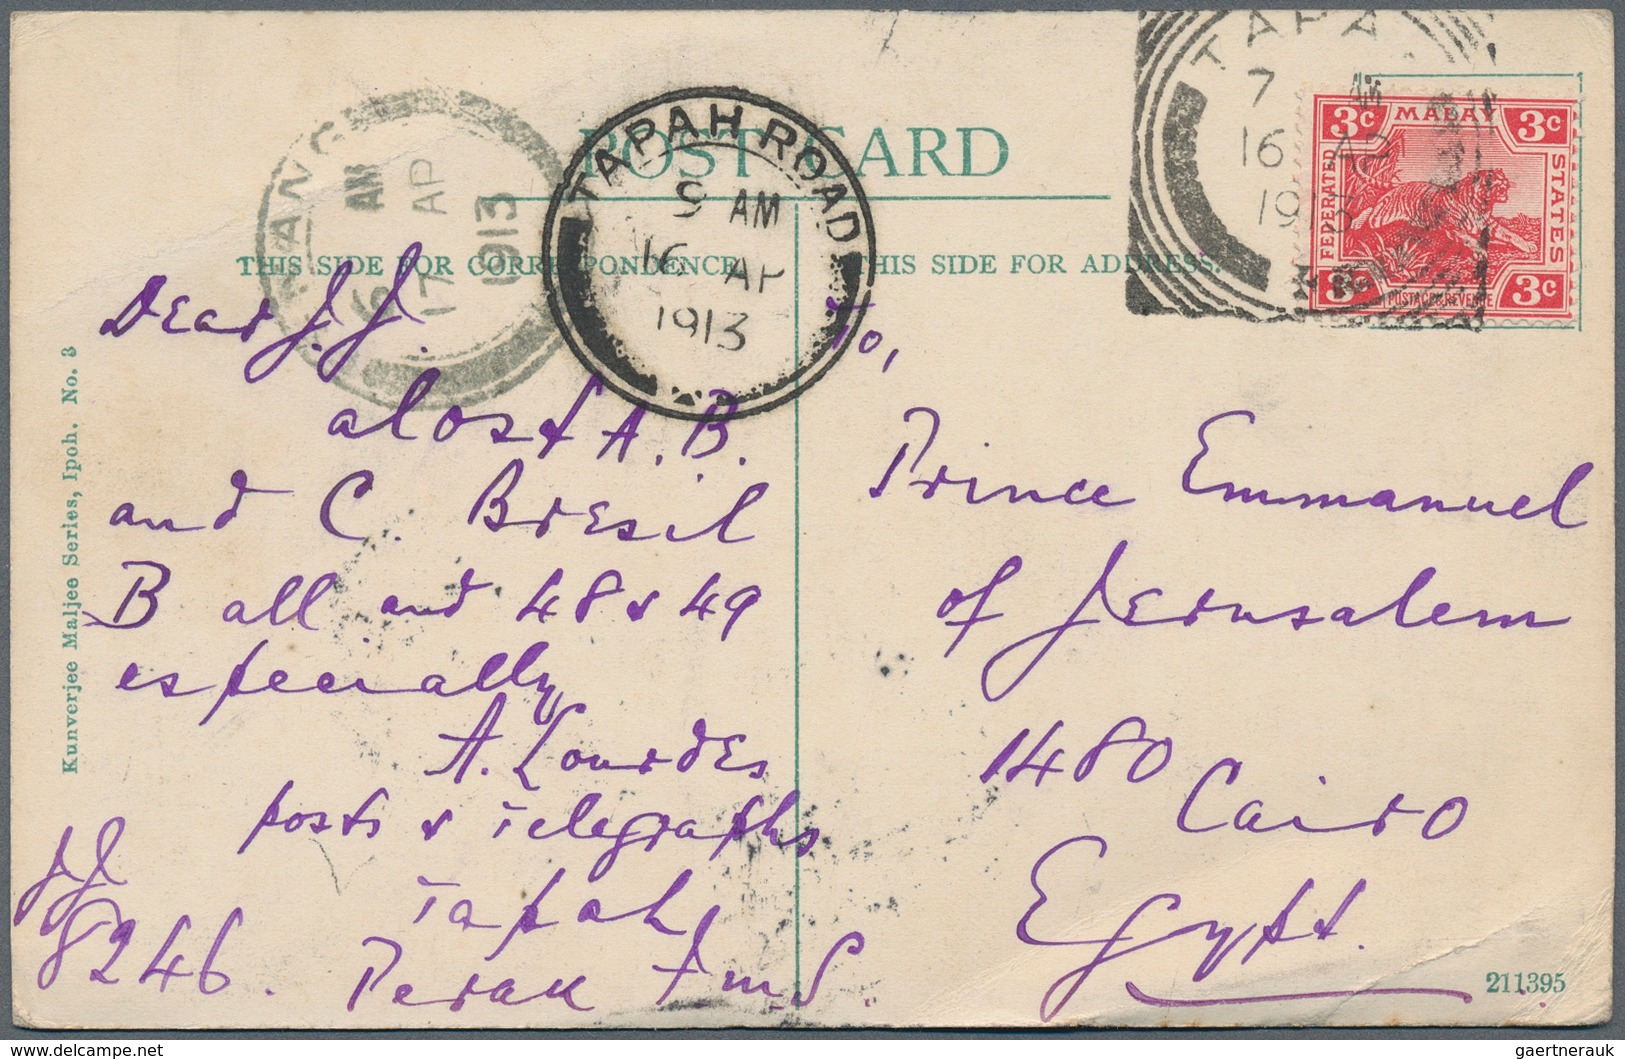 POST CARD
THIS SIDE FOR CORRESPONDENCE
THIS SIDE FOR ADDRESS.
TAPAH ROAD
9 AM
16 AP
1913
AM
17 AP
1913
TAPA
7
16 AP
1913
3c MALAY 3c
FEDERATED
STATES
POSTAGE & REVENUE
3c
Dear J.J.
alost A. B.
and C. Bresil
B all and 48 & 49
especially
A. Lourdes
posts & Telegraphs
Tapah
Perak F m S.
JJ
8246.
To,
Prince Emmanuel
of Jerusalem
1480
Cairo
Egypt.
Kunverjee Maljee Series, Ipoh. No. 3
211395
gaertnerauk
© delcampe.net